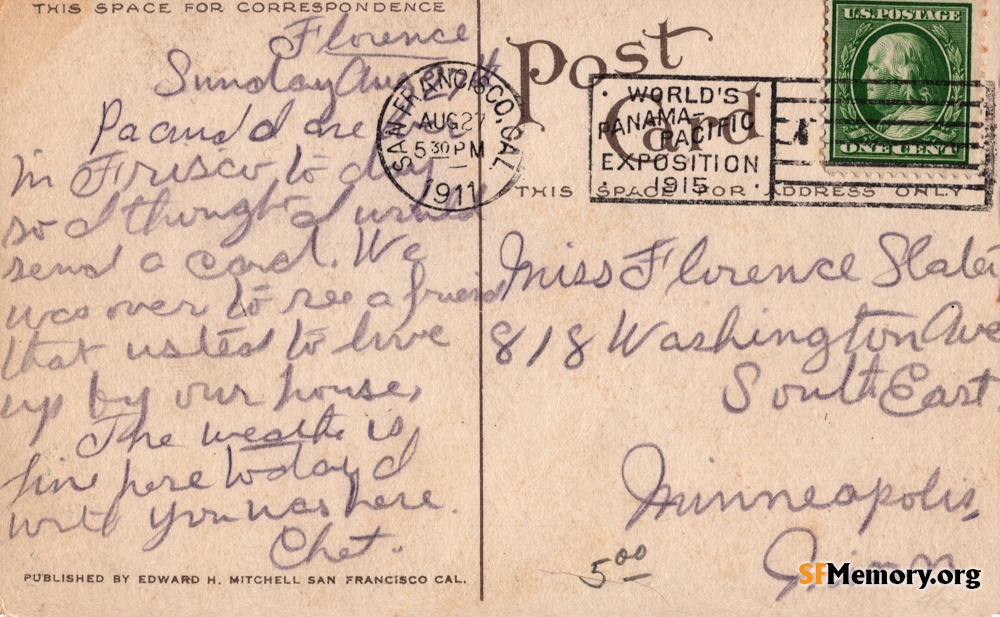 THIS SPACE FOR CORRESPONDENCE
Florence
Sunday Aug 27
Pa and I are
in Frisco to day
so I thought I would
send a card. We
was over to see a friend
that usted to live
up by our house,
The weathe is
fine here today I
wish you was here.
Chet.
PUBLISHED BY EDWARD H. MITCHELL SAN FRANCISCO CAL.
Post
Card
THIS SPACE FOR ADDRESS ONLY
SAN FRANCISCO, CAL.
AUG 27
5 30 PM
1911
WORLD'S
PANAMA-
PACIFIC
EXPOSITION
1915
U.S. POSTAGE
ONE CENT
Miss Florence Slater
818 Washington Ave
South East
Minneapolis,
Minn
5.00
SFMemory.org